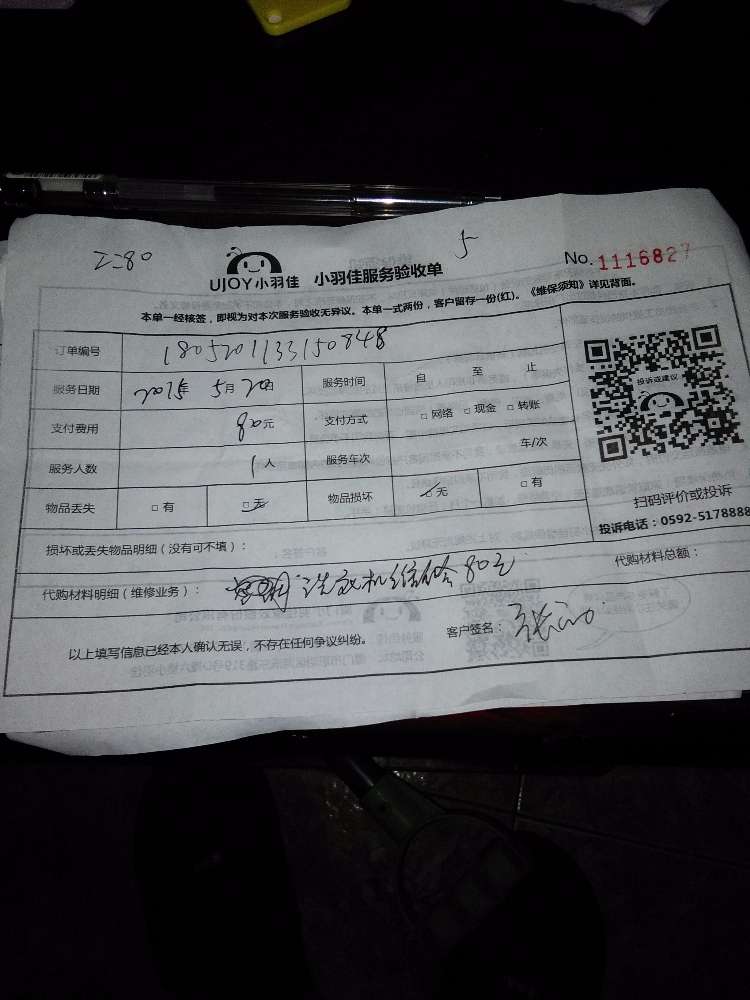 工:80
5
UJOY小羽佳 小羽佳服务验收单 No. 1116827
本单一经接签，即视为对本次服务验收无异议。本单一式两份，客户留存一份(红)。《维保须知》详见背面。
订单编号 1805201133150848
服务日期 2018年 5月 20日 服务时间 自 至 止
支付费用 80元 支付方式 □网络 □现金 □转账
服务人数 1人 服务车次 车/次
物品丢失 □有 □无 物品损坏 □无 □有
投诉或建议
扫码评价或投诉
投诉电话：0592-5178888
损坏或丢失物品明细（没有可不填）：
代购材料明细（维修业务）： 洗衣机维修 80元 代购材料总额：
以上填写信息已经本人确认无误，不存在任何争议纠纷。 客户签名：